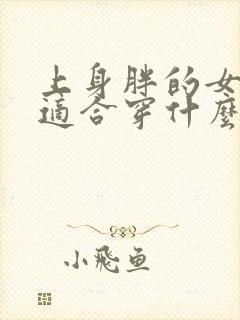 上身胖的女
適合穿什麼
小飛鱼